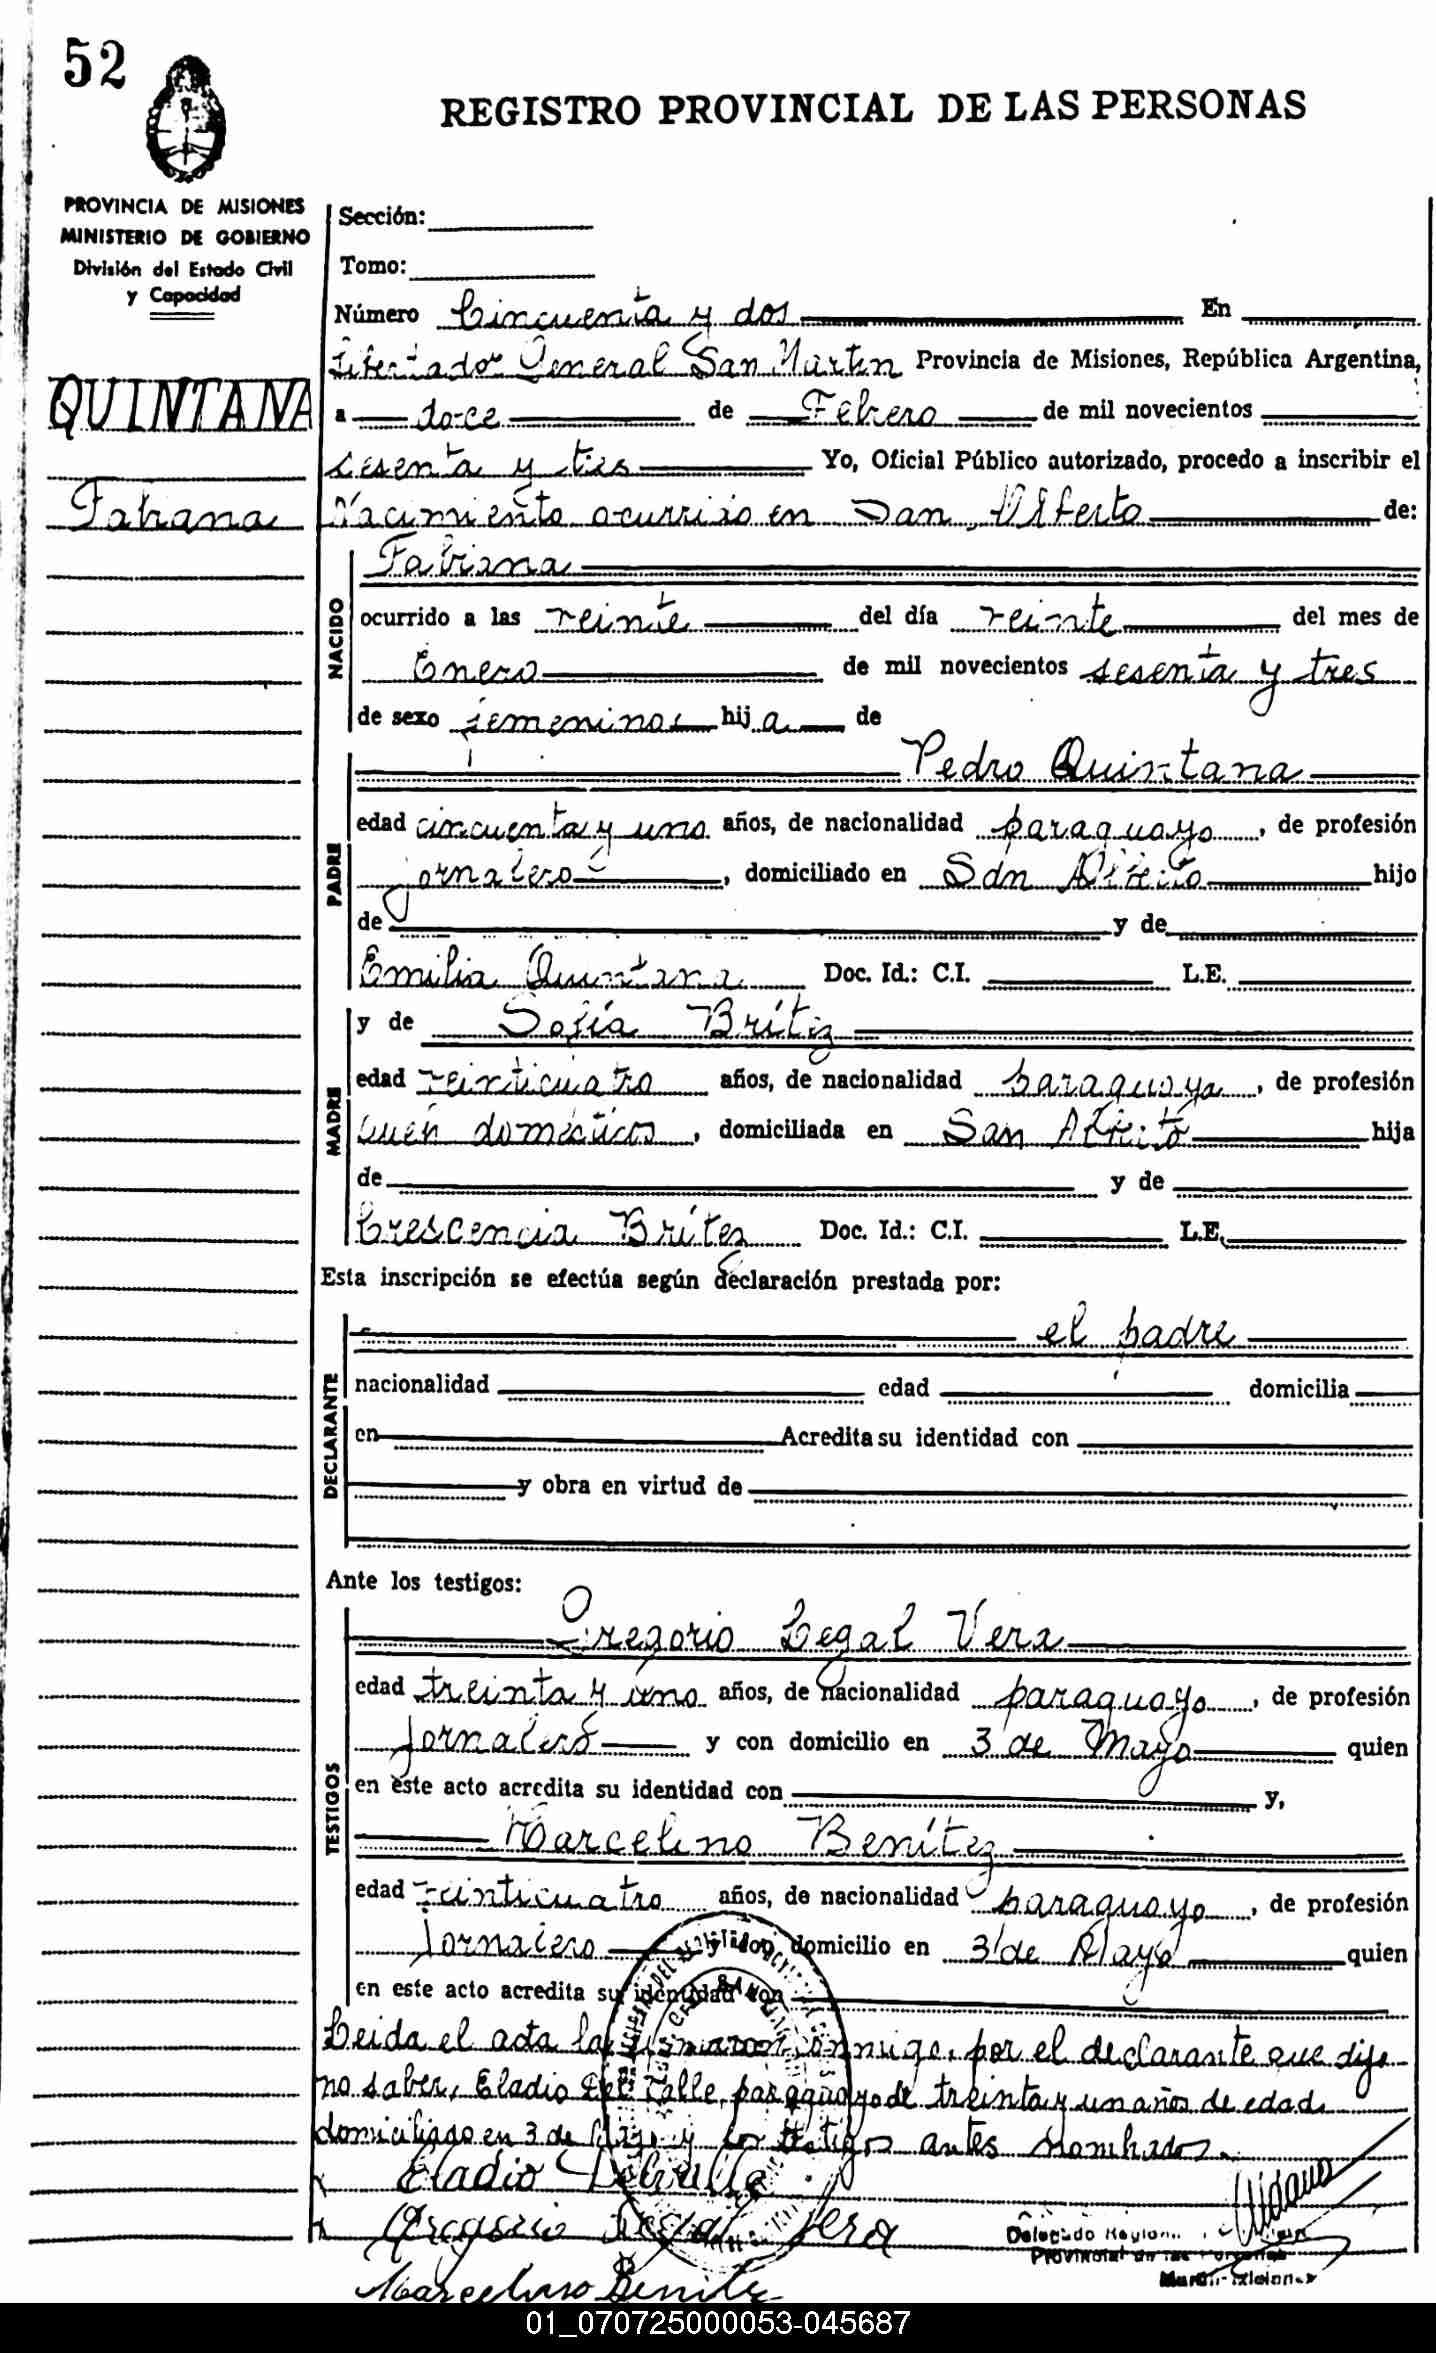 52
REGISTRO PROVINCIAL DE LAS PERSONAS
PROVINCIA DE MISIONES
MINISTERIO DE GOBIERNO
División del Estado Civil
y Capacidad
QUINTANA
Fabiana
Sección:
Tomo:
Número Cincuenta y dos En
Libertador General San Martín Provincia de Misiones, República Argentina,
a doce de Febrero de mil novecientos
sesenta y tres Yo, Oficial Público autorizado, procedo a inscribir el
Nacimiento ocurrido en San Alberto de:
NACIDO
Fabiana
ocurrido a las veinte del día veinte del mes de
Enero de mil novecientos sesenta y tres
de sexo femenino hija de
PADRE
Pedro Quintana
edad cincuenta y uno años, de nacionalidad paraguayo, de profesión
jornalero, domiciliado en San Alberto hijo
de y de
Emilia Quintana Doc. Id.: C.I. L.E.
MADRE
y de Sofía Brítez
edad veinticuatro años, de nacionalidad paraguaya, de profesión
domésticos, domiciliada en San Alberto hija
de y de
Crescencia Brítez Doc. Id.: C.I. L.E.
Esta inscripción se efectúa según declaración prestada por:
DECLARANTE
el padre
nacionalidad edad domicilia
en Acredita su identidad con
y obra en virtud de
Ante los testigos:
TESTIGOS
Gregorio Legal Vera
edad treinta y uno años, de nacionalidad paraguayo, de profesión
Jornalero y con domicilio en 3 de Mayo quien
en este acto acredita su identidad con y,
Marcelino Benítez
edad veinticuatro años, de nacionalidad paraguayo, de profesión
Jornalero y con domicilio en 3 de Mayo quien
en este acto acredita su identidad con
Leida el acta la firmaron conmigo, por el declarante que dijo
no saber, Eladio Del Valle, paraguayo de treinta y un años de edad
domiciliado en 3 de Mayo y los testigos antes nombrados.
Eladio Delvalle
Gregorio Legal Vera
Marcelino Benitez
Delegado
01_070725000053-045687